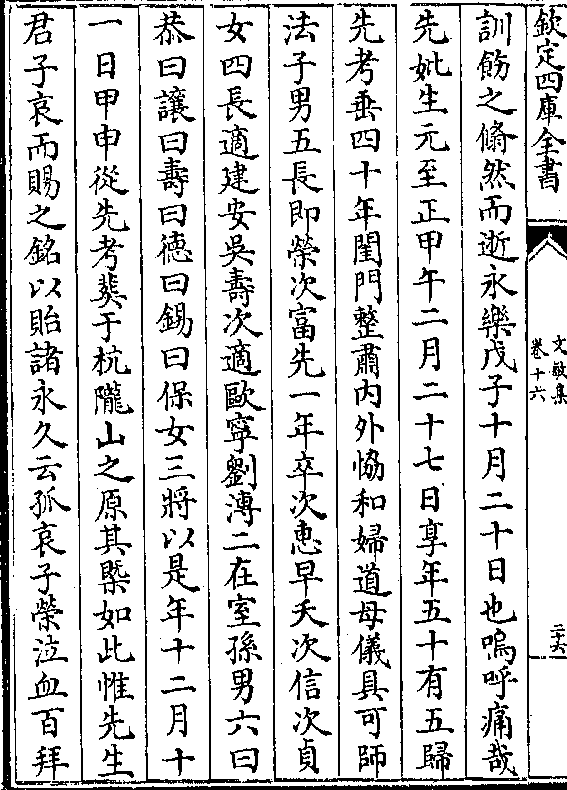 欽定四庫全書
文敏集
卷十六
二十六
訓飭之翛然而逝永樂戊子十月二十日也嗚呼痛哉
先妣生元至正甲午二月二十七日享年五十有五歸
先考垂四十年閨門整肅内外恊和婦道母儀具可師
法子男五長即榮次富先一年卒次恵早夭次信次貞
女四長適建安吳壽次適歐寧劉漙二在室孫男六曰
恭曰讓曰壽曰德曰錫曰保女三將以是年十二月十
一日甲申從先考𦵏于杭隴山之原其槩如此惟先生
君子哀而賜之銘以貽諸永久云孤哀子榮泣血百拜